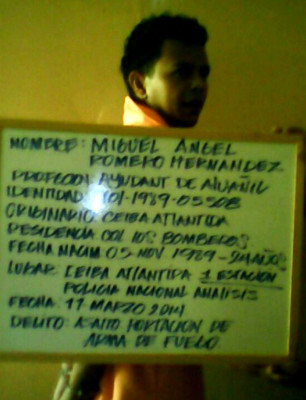 NOMBRE: MIGUEL ANGEL
ROMERO HERNANDEZ
PROFECION: AYUDANT DE AVAÑIL
IDENTIDAD: 101-1989-03308
ORIGINARIO: CEIBA ATLANTIDA
RESIDENCIA COL LOS BOMBEROS
FECHA NACIM 05 NOV 1989 - 24 AÑOS
LUGAR: CEIBA ATLANTIDA 1 ESTACION
POLICIA NACIONAL ANALISIS
FECHA: 17 MARZO 2014
DELITO: ASALTO PORTACION DE
ARMA DE FUEGO